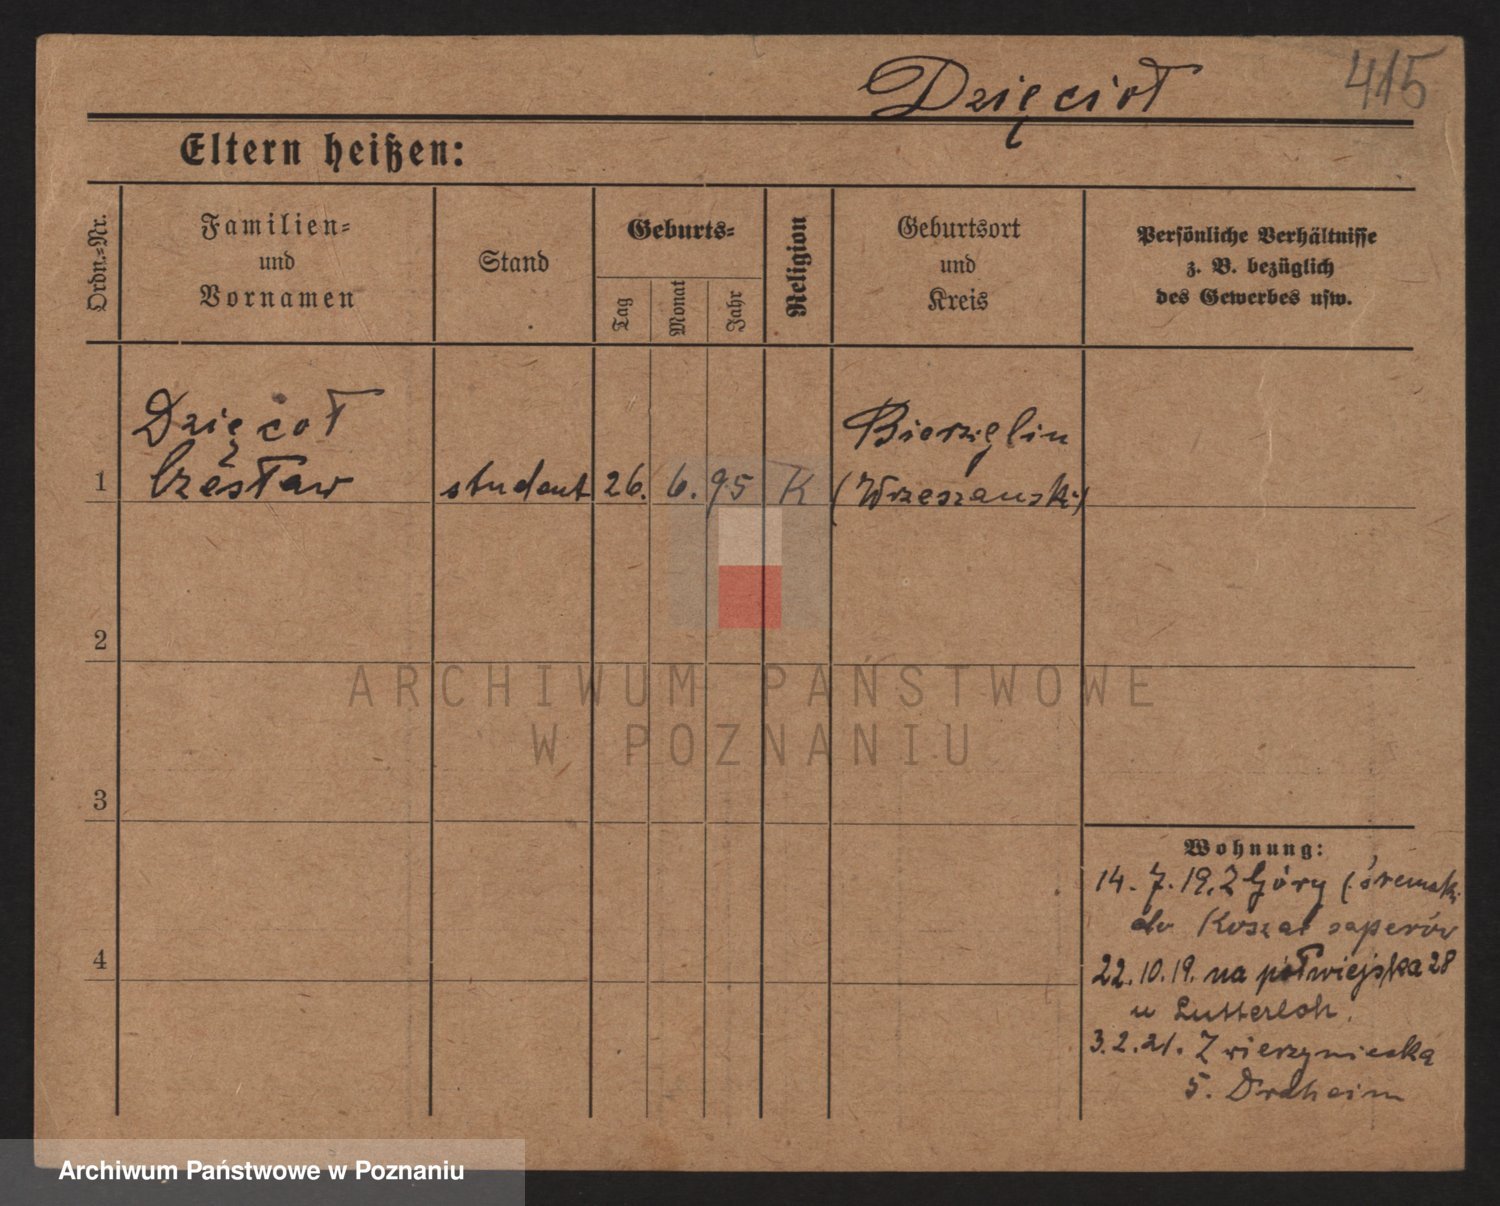 Dzięcioł 415
Eltern heißen:
Ordn.-Nr.
Familien-
und
Vornamen
Stand
Geburts-
Tag
Monat
Jahr
Religion
Geburtsort
und
Kreis
Persönliche Verhältnisse
z. B. bezüglich
des Gewerbes usw.
Dzięcioł
1 Czesław student 26. 6. 95 K
Bierzglin
(Wrzeszański)
2
3
4
Wohnung:
14. 7. 19. Z Góry (śremski
do Koszar saperów
22. 10. 19. na półwiejska 28
u Lutterloh.
3. 2. 21. Zwierzyniecka
5. Drdheim
ARCHIWUM PAŃSTWOWE
W POZNANIU
Archiwum Państwowe w Poznaniu